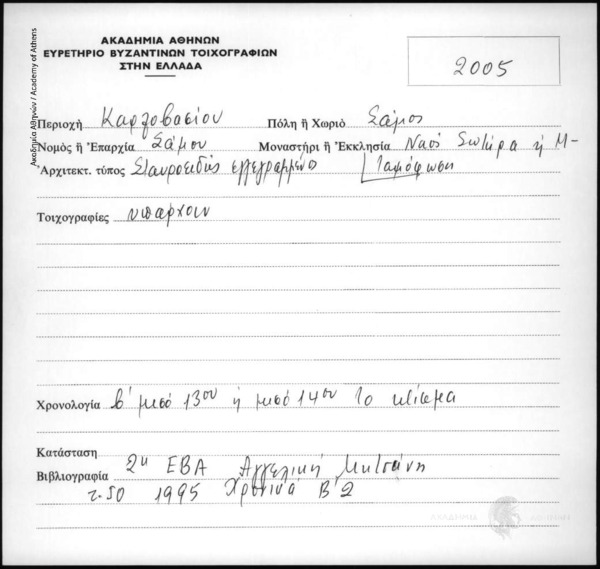 ΑΚΑΔΗΜΙΑ ΑΘΗΝΩΝ
ΕΥΡΕΤΗΡΙΟ ΒΥΖΑΝΤΙΝΩΝ ΤΟΙΧΟΓΡΑΦΙΩΝ
ΣΤΗΝ ΕΛΛΑΔΑ
2005
Ακαδημία Αθηνών / Academy of Athens
Περιοχὴ Καρλοβασίου Πόλη ἢ Χωριὸ Σάμος
Νομὸς ἢ Ἐπαρχία Σάμου Μοναστήρι ἢ Ἐκκλησία Ναός Σωτήρα ή Μ-
Ἀρχιτεκτ. τύπος Σταυροειδής εγγεγραμμένος ταμόρφωση
Τοιχογραφίες υπαρχουν
Χρονολογία β' μισό 13ου ή μισό 14ου το κτίσμα
Κατάσταση
Βιβλιογραφία 2η ΕΒΑ Αγγελική Μιτσάνη
τ. 50 1995 Χρονικά Β'2